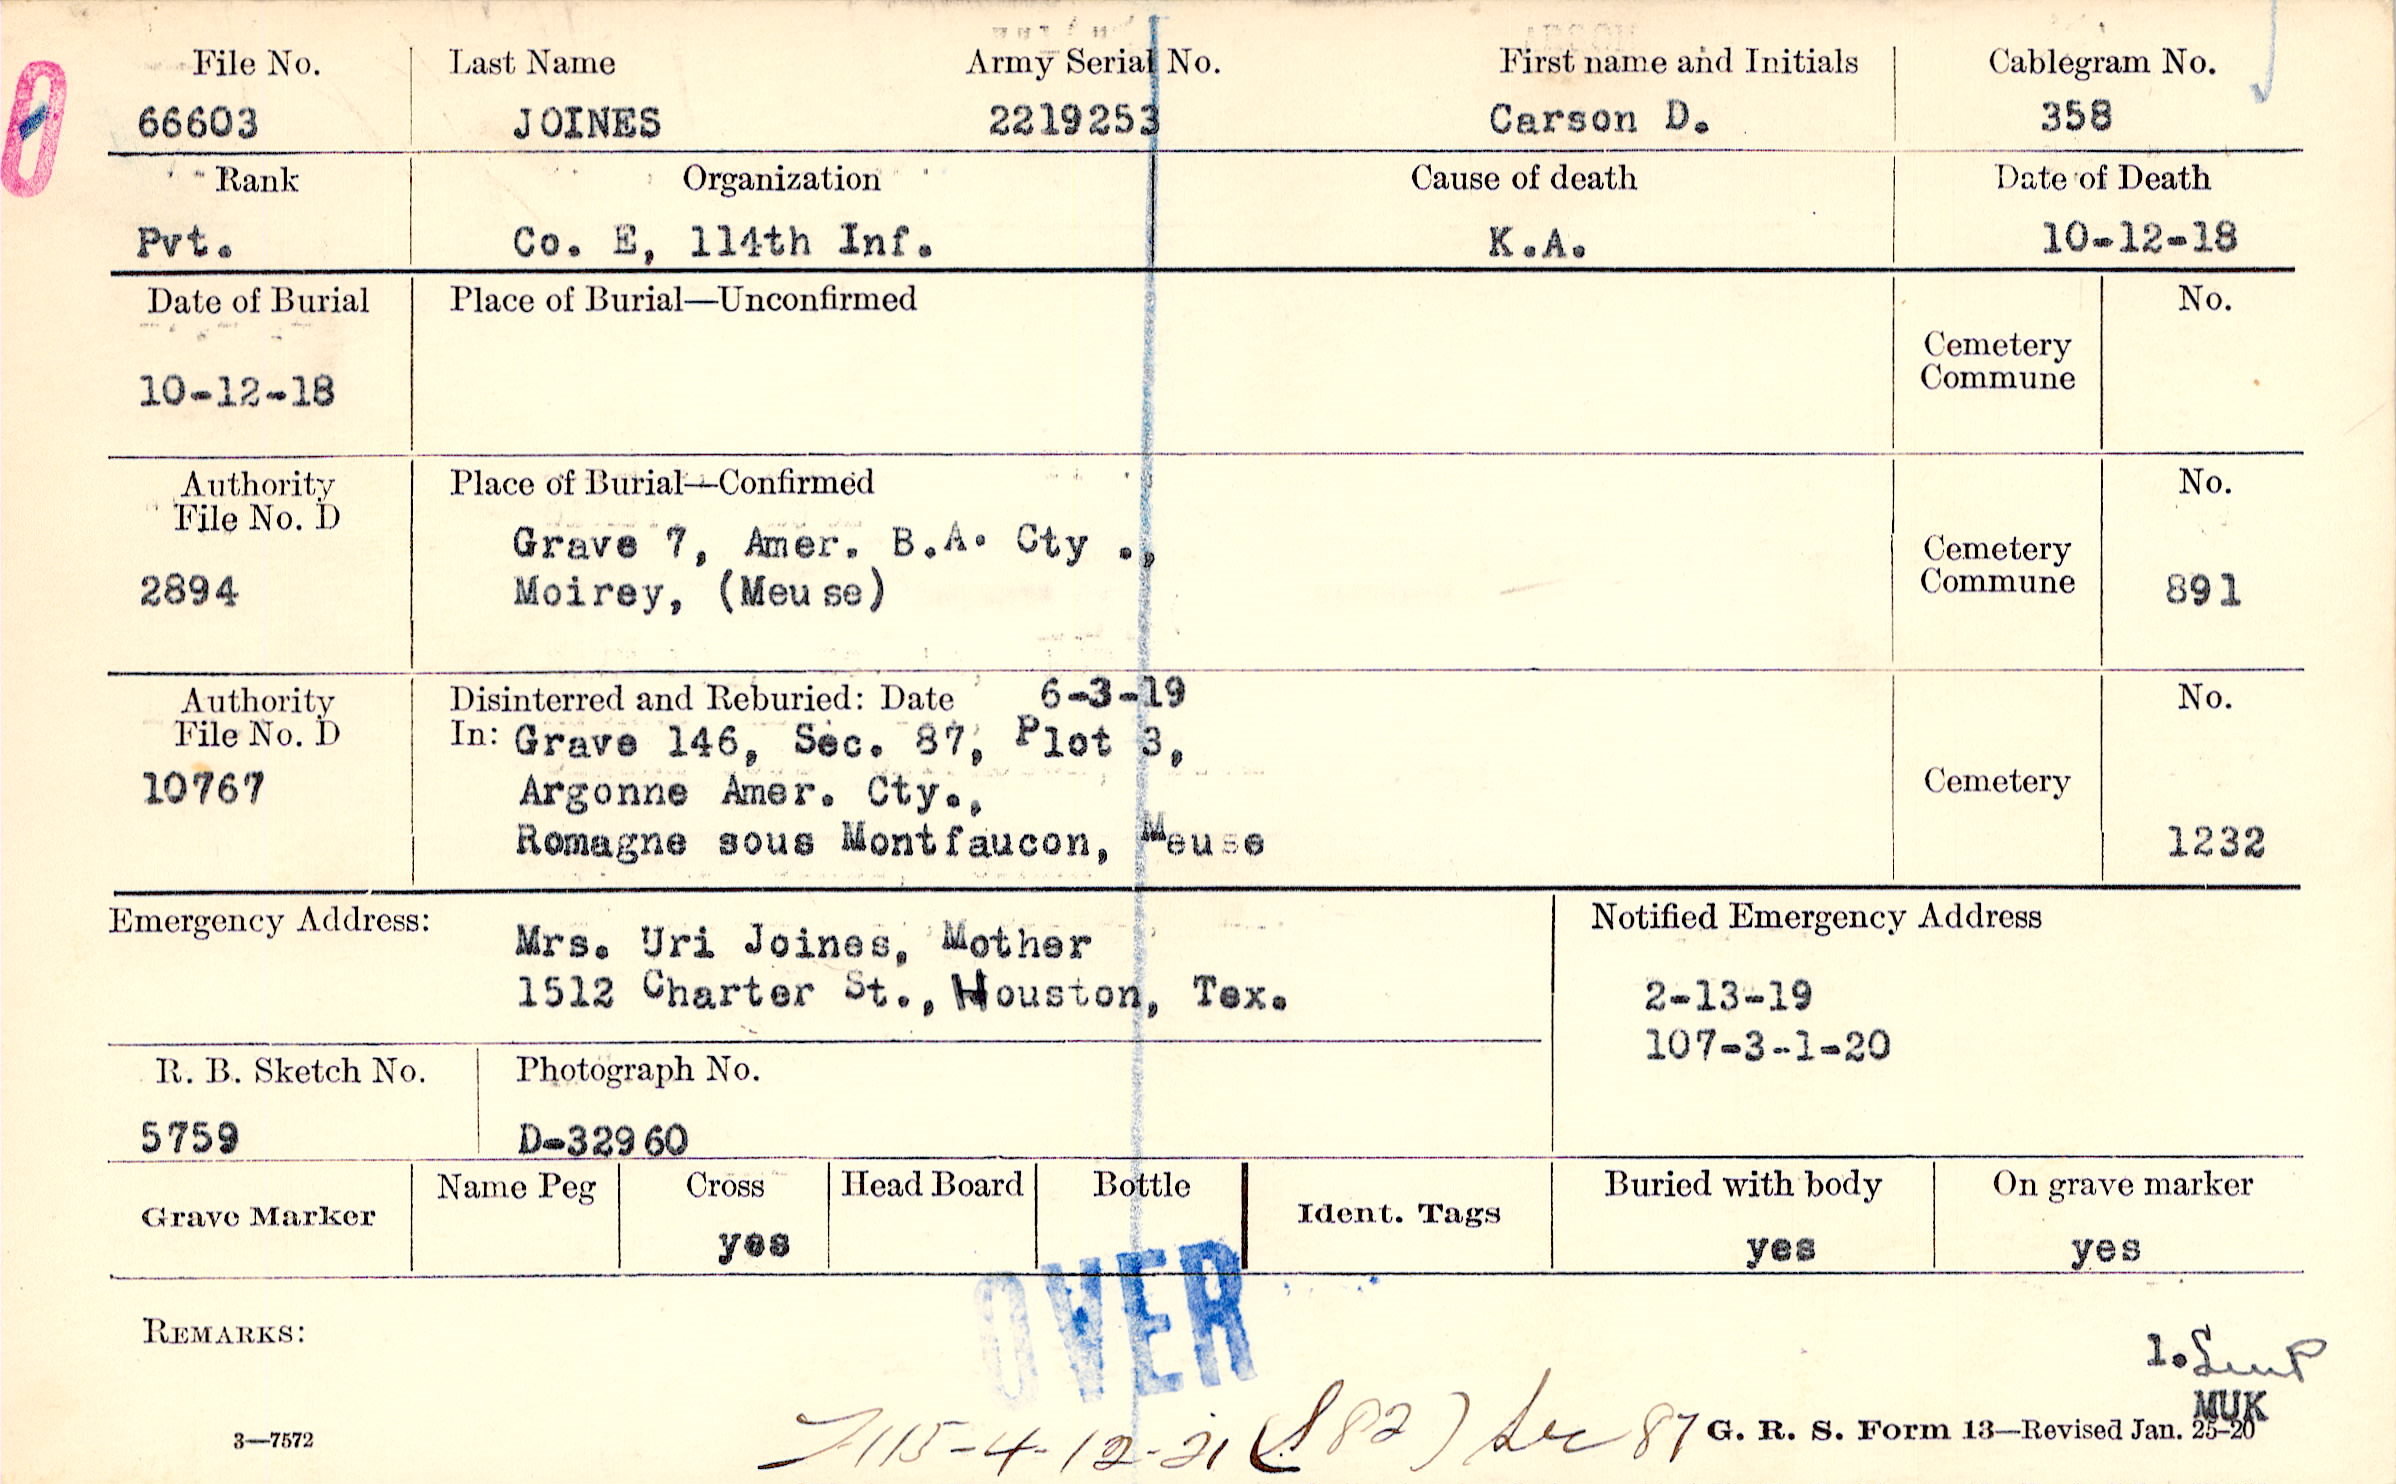 File No. Last Name Army Serial No. First name and Initials Cablegram No.
66603 JOINES 2219253 Carson D. 358
Rank Organization Cause of death Date of Death
Pvt. Co. E, 114th Inf. K.A. 10-12-18
Date of Burial Place of Burial—Unconfirmed No.
Cemetery
Commune
10-12-18
Authority Place of Burial—Confirmed No.
File No. D
Grave 7, Amer. B.A. Cty .,
Cemetery
2894 Moirey, (Meuse) Commune 891
Authority Disinterred and Reburied: Date 6-3-19 No.
File No. D In: Grave 146, Sec. 87, Plot 3,
10767 Argonne Amer. Cty., Cemetery
Romagne sous Montfaucon, Meuse 1232
Emergency Address: Notified Emergency Address
Mrs. Uri Joines, Mother
1512 Charter St., Houston, Tex. 2-13-19
107-3-1-20
R. B. Sketch No. Photograph No.
5759 D-32960
Grave Marker Name Peg Cross Head Board Bottle Ident. Tags Buried with body On grave marker
yes yes yes
OVER
REMARKS:
1.
MUK
115-4-12-21 (S 82) Sec 87
3—7572 G. R. S. Form 13—Revised Jan. 25-20